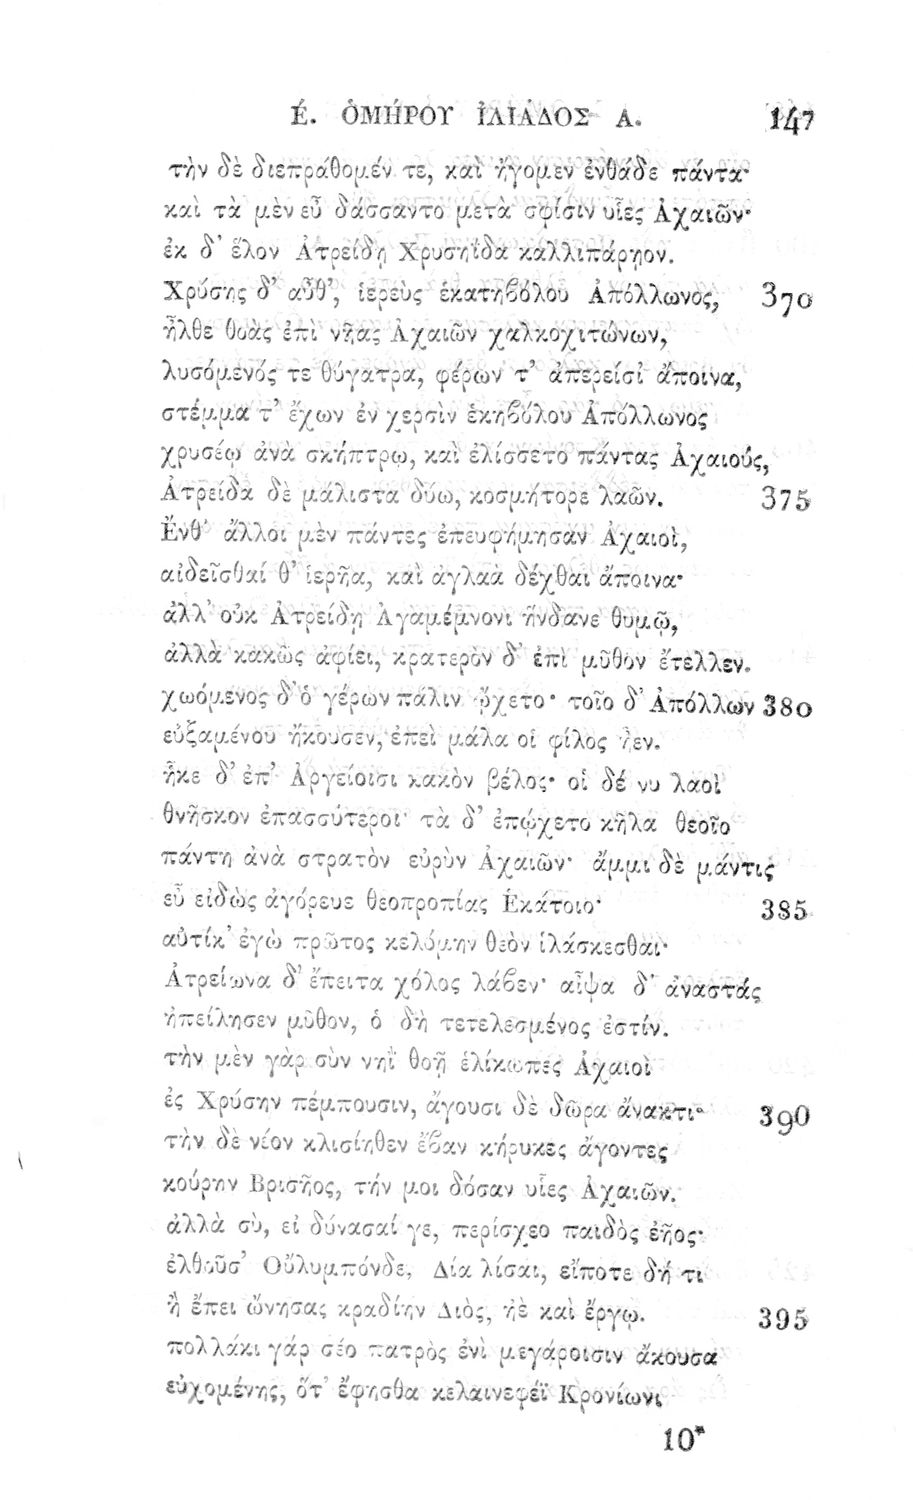 Ἐ. ὉΜΗΡΟΥ ἸΛΙΆΔΟΣ Α. 147
τὴν δὲ διεπράθομέν τε, καὶ ἤγομεν ἐνθάδε πάντα·
καὶ τὰ μὲν εὖ δάσσαντο μετὰ σφίσιν υἷες Ἀχαιῶν·
ἐκ δ’ ἕλον Ἀτρείδῃ Χρυσηΐδα καλλιπάρῃον.
Χρύσης δ’ αὖθ’, ἱερεὺς ἑκατηβόλου Ἀπόλλωνος, 370
ἦλθε θοὰς ἐπὶ νῆας Ἀχαιῶν χαλκοχιτώνων,
λυσόμενός τε θύγατρα, φέρων τ’ ἀπερείσι ἄποινα,
στέμμα τ’ ἔχων ἐν χερσὶν ἑκηβόλου Ἀπόλλωνος
χρυσέῳ ἀνὰ σκήπτρῳ, καὶ ἐλίσσετο πάντας Ἀχαιούς,
Ἀτρείδα δὲ μάλιστα δύω, κοσμήτορε λαῶν. 375
Ἔνθ’ ἄλλοι μὲν πάντες ἐπευφήμησαν Ἀχαιοὶ,
αἰδεῖσθαί θ’ ἱερῆα, καὶ ἀγλαὰ δέχθαι ἄποινα·
ἀλλ’ οὐκ Ἀτρείδῃ Ἀγαμέμνονι ἥνδανε θυμῷ,
ἀλλὰ κακῶς ἀφίει, κρατερὸν δ’ ἐπὶ μῦθον ἔτελλεν.
χωόμενος δ’ ὁ γέρων πάλιν ᾤχετο· τοῖο δ’ Ἀπόλλων 380
εὐξαμένου ἤκουσεν, ἐπεὶ μάλα οἱ φίλος ἦεν.
ἧκε δ’ ἐπ’ Ἀργείοισι κακὸν βέλος· οἱ δέ νυ λαοὶ
θνῆσκον ἐπασσύτεροι· τὰ δ’ ἐπῴχετο κῆλα θεοῖο
πάντη ἀνὰ στρατὸν εὐρὺν Ἀχαιῶν· ἄμμι δὲ μάντις
εὖ εἰδὼς ἀγόρευε θεοπροπίας Ἑκάτοιο· 385
αὐτίκ’ ἐγὼ πρῶτος κελόμην θεὸν ἱλάσκεσθαι·
Ἀτρείωνα δ’ ἔπειτα χόλος λάβεν· αἶψα δ’ ἀναστὰς
ἠπείλησεν μῦθον, ὁ δὴ τετελεσμένος ἐστίν.
τὴν μὲν γὰρ σὺν νηῒ θοῇ ἑλίκωπες Ἀχαιοὶ
ἐς Χρύσην πέμπουσιν, ἄγουσι δὲ δῶρα ἄνακτι· 390
τὴν δὲ νέον κλισίηθεν ἔβαν κήρυκες ἄγοντες
κούρην Βρισῆος, τήν μοι δόσαν υἷες Ἀχαιῶν.
ἀλλὰ σὺ, εἰ δύνασαί γε, περίσχεο παιδὸς ἑῆος·
ἐλθοῦσ’ Οὔλυμπόνδε, Δία λίσαι, εἴποτε δή τι
ἢ ἔπει ὤνησας κραδίην Διὸς, ἠὲ καὶ ἔργῳ. 395
πολλάκι γάρ σέο πατρὸς ἐνὶ μεγάροισιν ἄκουσα
εὐχομένης, ὅτ’ ἔφησθα κελαινεφέϊ Κρονίωνι
10*